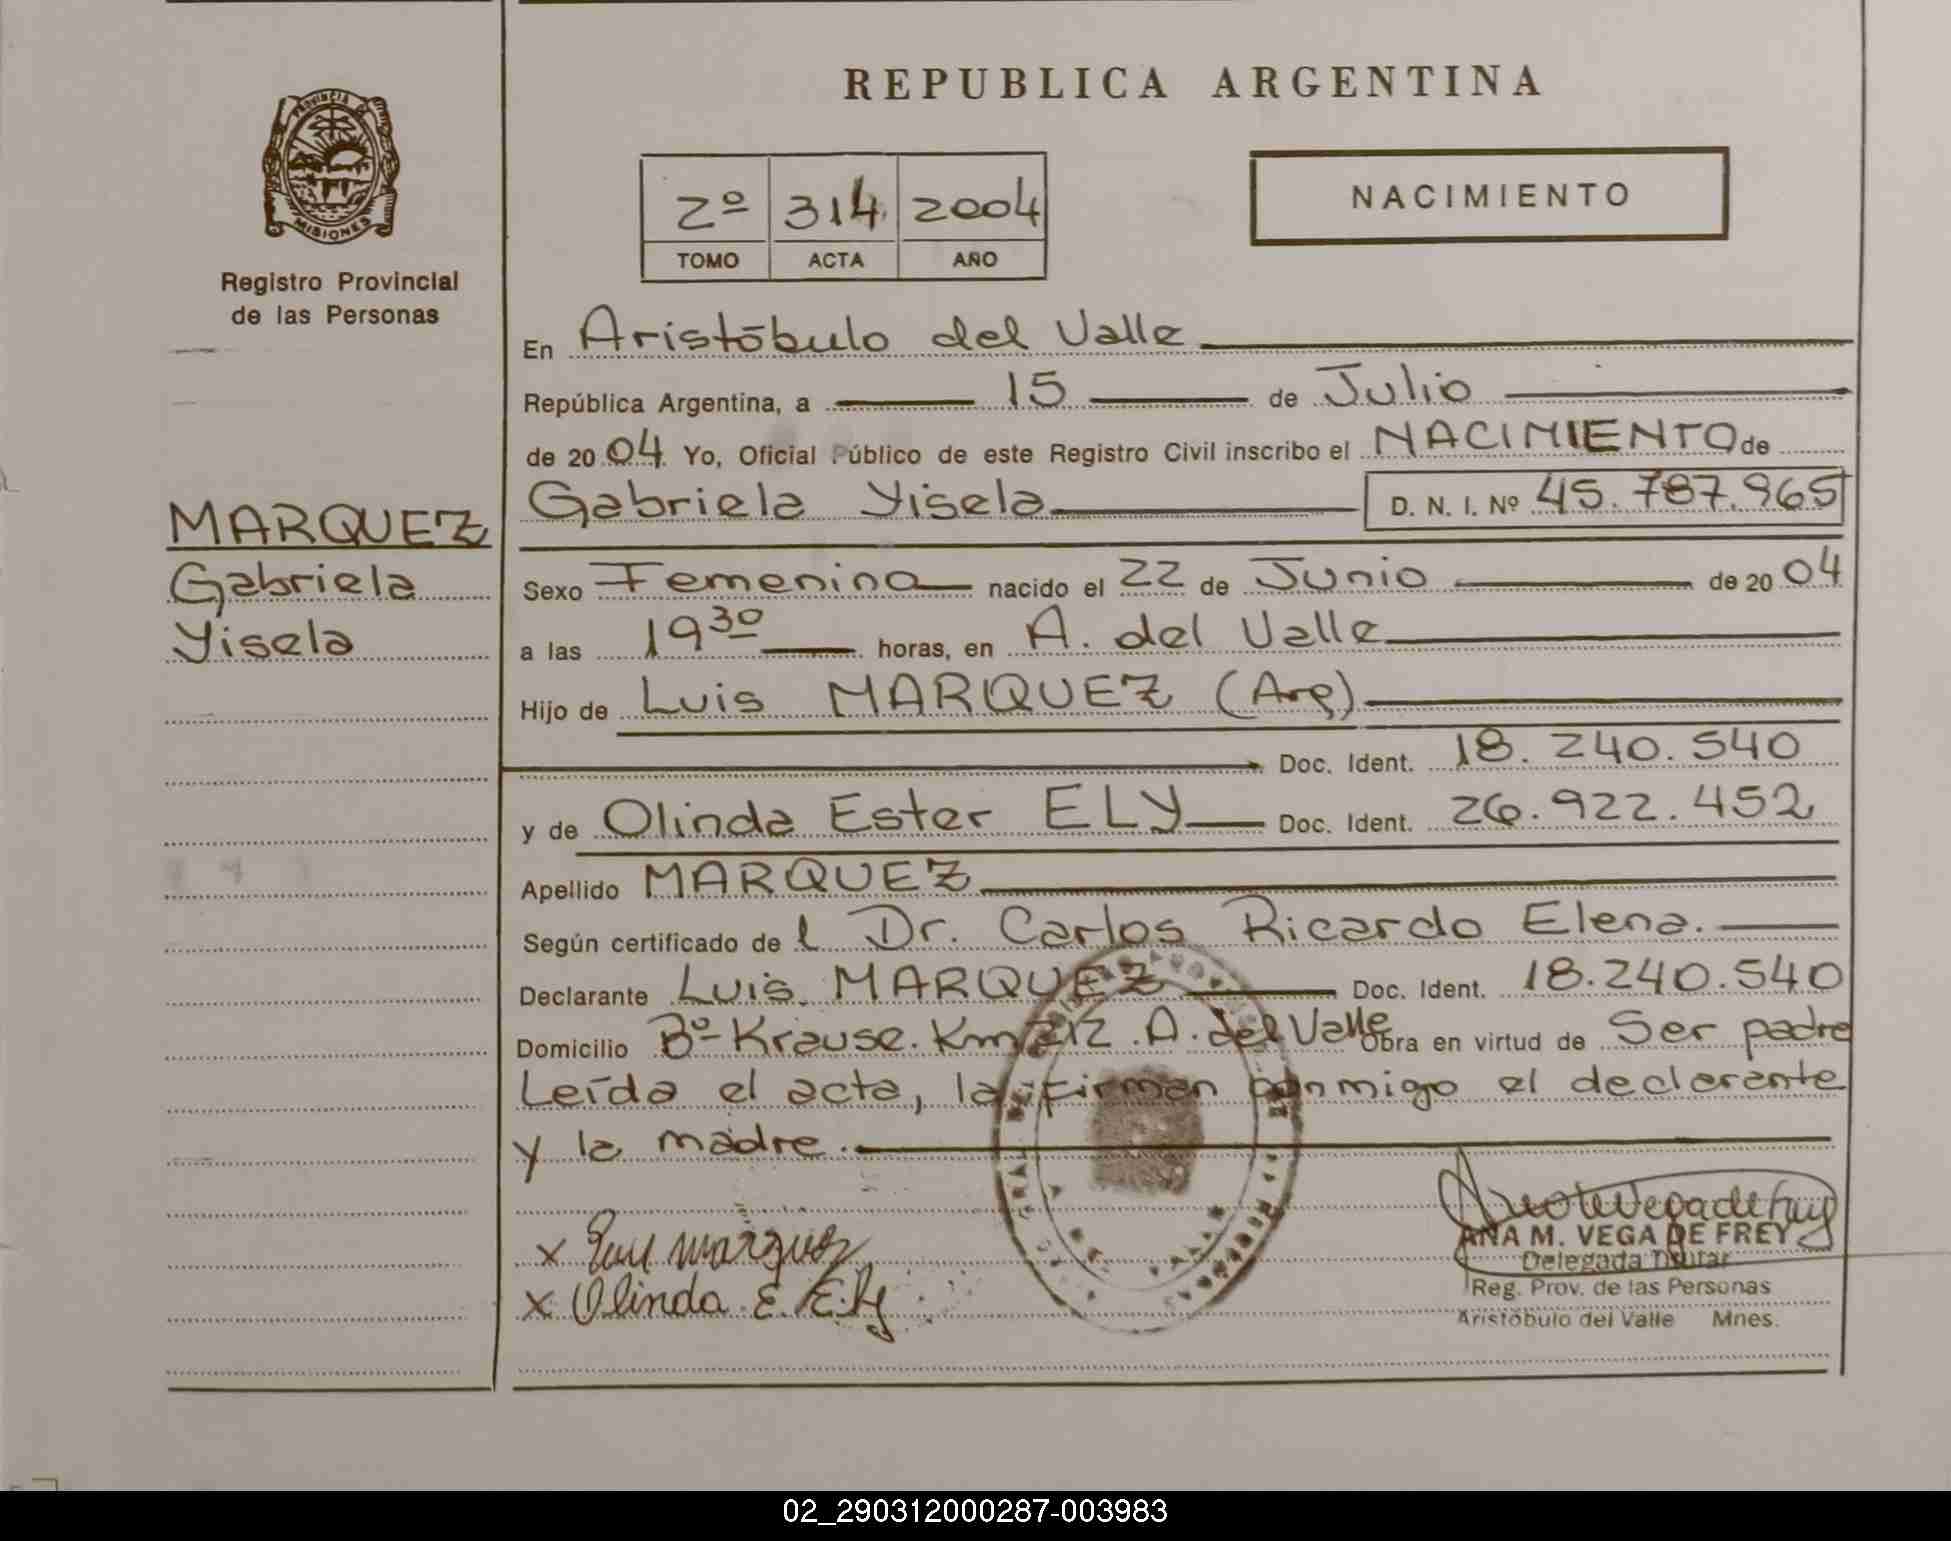 REPUBLICA ARGENTINA
PROVINCIA DE
MISIONES
Registro Provincial
de las Personas
2º 314 2004
TOMO ACTA AÑO
NACIMIENTO
En Aristóbulo del Valle
República Argentina, a 15 de Julio
de 2004 Yo, Oficial Público de este Registro Civil inscribo el NACIMIENTO de
MARQUEZ
Gabriela
Yisela
Gabriela Yisela D. N. I. Nº 45.787.965
Sexo Femenino nacido el 22 de Junio de 2004
a las 19³⁰ horas, en A. del Valle
Hijo de Luis MARQUEZ (Arg)
Doc. Ident. 18.240.540
y de Olinda Ester ELY Doc. Ident. 26.922.452
Apellido MARQUEZ
Según certificado del Dr. Carlos Ricardo Elena.
Declarante Luis MARQUEZ Doc. Ident. 18.240.540
Domicilio Bº Krause. Km 212. A. del Valle Obra en virtud de Ser padre
Leída el acta, la firman conmigo el declarante
y la madre.
x Luis marquez
x Olinda E. Ely
ANA M. VEGA DE FREY
Delegada Titular
Reg. Prov. de las Personas
Aristóbulo del Valle Mnes.
02_290312000287-003983